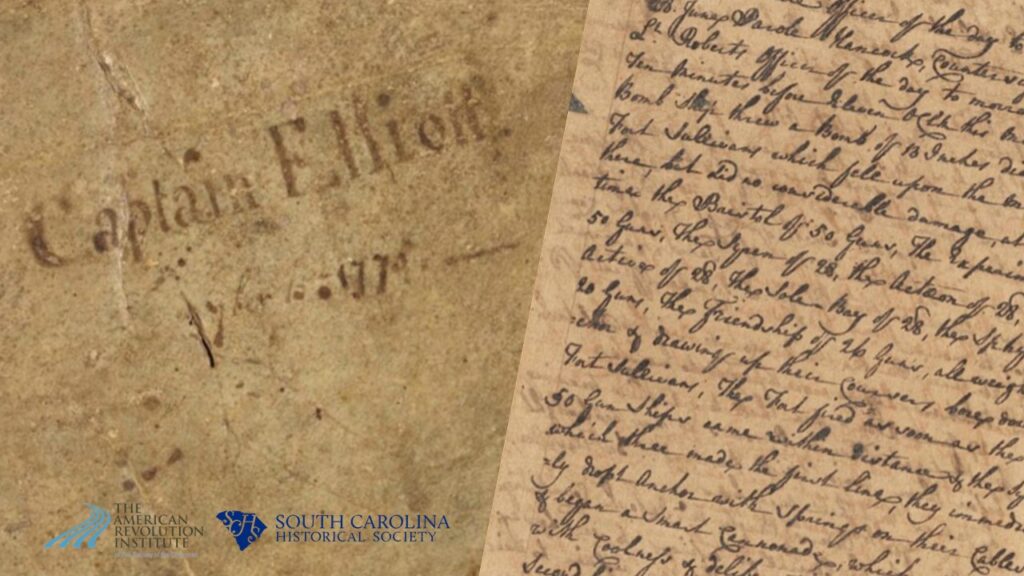 Captain Elliott.
1775.
THE
AMERICAN
REVOLUTION
INSTITUTE
SCHS
SOUTH CAROLINA
HISTORICAL SOCIETY
Officer of the day to
June Parole Hancock, Countersi
Lt. Roberts, Officer of the day to morr
Ten Minutes before Eleven OClk this m
Bomb Ship threw a Bomb of 13 Inches di
Fort Sullivans which fell upon the
there, but did no considerable damage, at
time the Bristol of 50 Guns, The Experim
50 Guns, The Syren of 28, the Acteon of 28,
Active of 28, The Solen Bay of 28, the Sphy
20 Guns, the Friendship of 26 Guns, all weigh
& drawing up their Courses, bore down
Fort Sullivans, The Fort fired as soon as the
50 Gun Ships came within distance & they
which three made the first line, they immed
ly dropt Anchor with Springs on their Cables
& began a Smart Cannonade, which
with Coolness & delib
Second